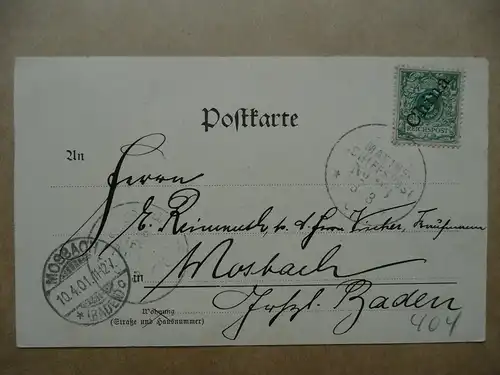 China
REICHSPOST
Postkarte
MARINE-
SCHIFFSPOST
3
An
Herrn
E. Reinmuth, p. d. Herrn Vischer, Kaufmann
MOSBACH
10.4.01. 11-12V
* (BADEN)
in Mosbach
Wohnung
(Straße und Hausnummer)
Baden
404